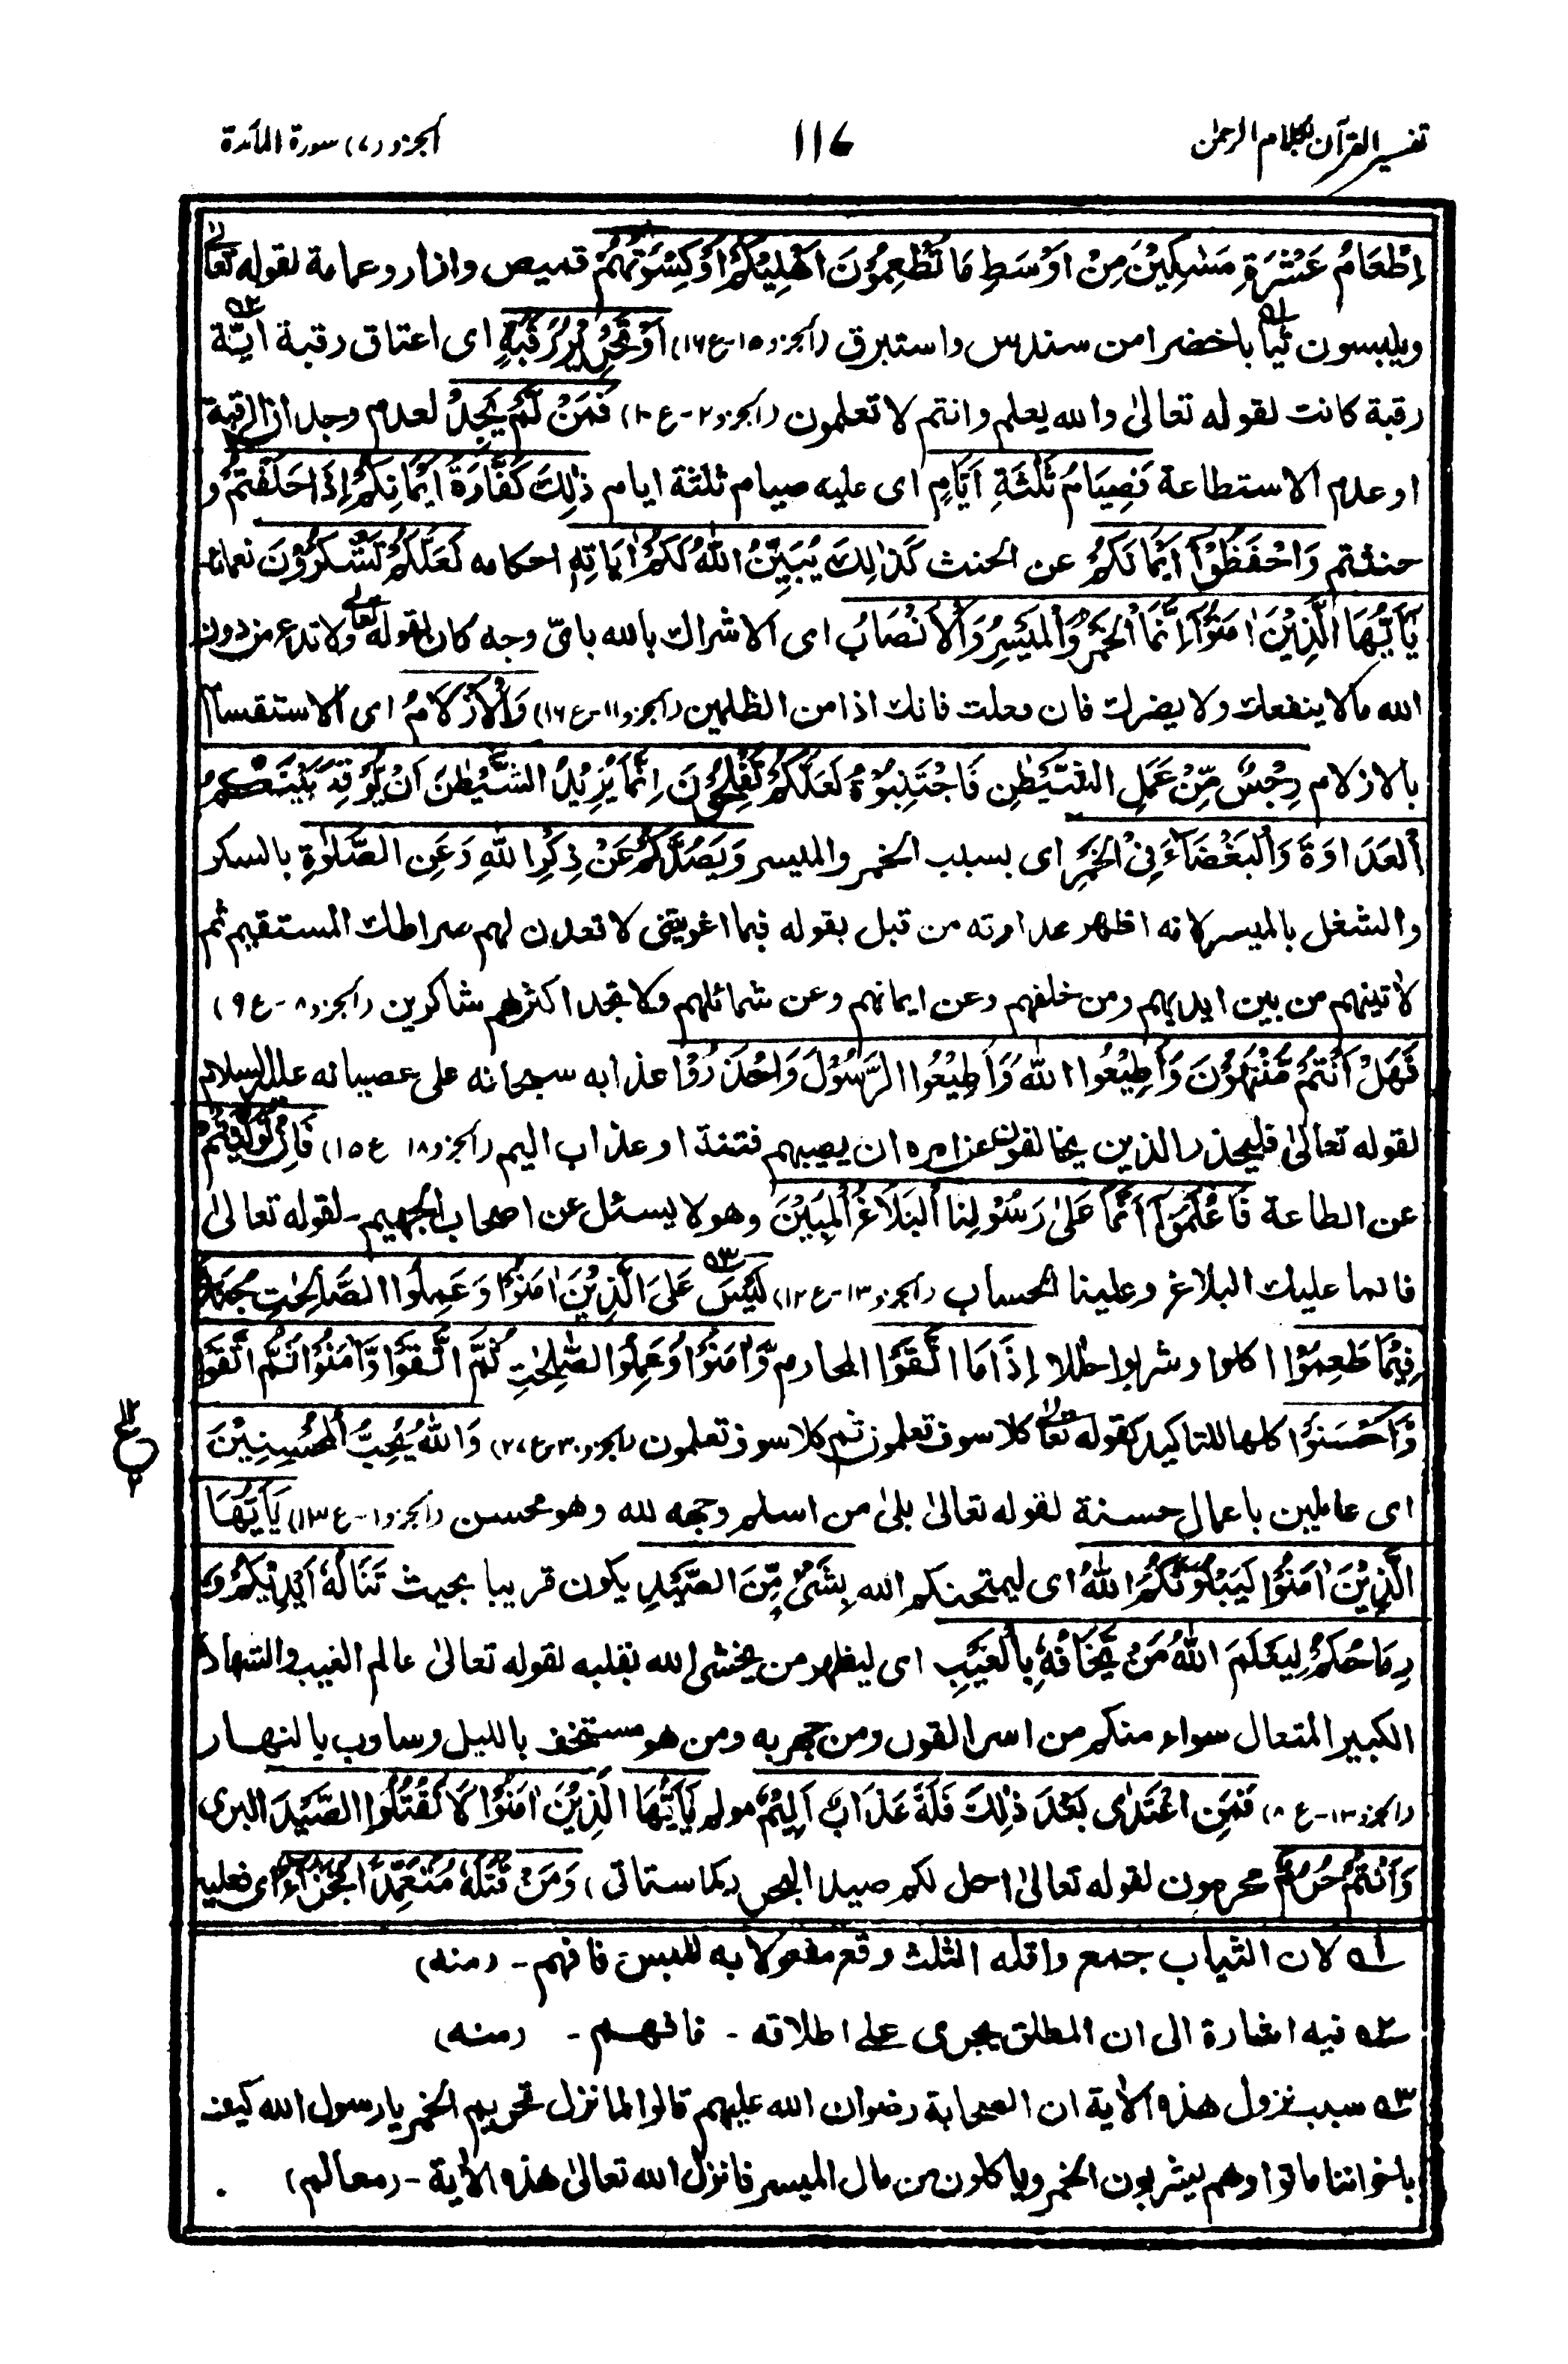 تفسير القرآن بكلام الرحمن
١١٧
الجزو (٧) سورة المآئدة
اِطْعَامُ عَشَرَةِ مَسٰكِيْنَ مِنْ اَوْسَطِ مَا تُطْعِمُوْنَ اَهْلِيْكُمْ اَوْ كِسْوَتُهُمْ قميص وازار وعمامة لقوله تعالى
ويلبسون ثيا۱؎با خضرا من سندس واستبرق (الجزو ١٥-ع ١٦) اَوْ تَحْرِيْرُ رَقَبَةٍ اى اعتاق رقبة ايّة۲؎
رقبة كانت لقوله تعالىٰ والله يعلم وانتم لا تعلمون (الجزو ٢-ع ١٠) فَمَنْ لَّمْ يَجِدْ لعدم وجدان الرقبة
او عدم الاستطاعة فَصِيَامُ ثَلٰثَةِ اَيَّامٍ اى عليه صيام ثلثة ايام ذٰلِكَ كَفَّارَةُ اَيْمَانِكُمْ اِذَا حَلَفْتُمْ و
حنثتم وَاحْفَظُوْٓا اَيْمَانَكُمْ عن الحنث كَذٰلِكَ يُبَيِّنُ اللهُ لَكُمْ اٰيَاتِهٖ احكامه لَعَلَّكُمْ تَشْكُرُوْنَ نعمائه
يٰٓاَيُّهَا الَّذِيْنَ اٰمَنُوْٓا اِنَّمَا الْخَمْرُ وَالْمَيْسِرُ وَالْاَنْصَابُ اى الاشراك بالله باىّ وجه كان لقوله تعالى ولا تدع من دون
الله مالا ينفعك ولا يضرك فان فعلت فانك اذا من الظلمين (الجزو ١١-ع ١٦) وَالْاَزْلَامُ اى الاستقسام
بالازلام رِجْسٌ مِّنْ عَمَلِ الشَّيْطٰنِ فَاجْتَنِبُوْهُ لَعَلَّكُمْ تُفْلِحُوْنَ اِنَّمَا يُرِيْدُ الشَّيْطٰنُ اَنْ يُّوْقِعَ بَيْنَكُمُ
الْعَدَاوَةَ وَالْبَغْضَآءَ فِى الْخَمْرِ اى بسبب الخمر والميسر وَيَصُدَّكُمْ عَنْ ذِكْرِ اللهِ وَعَنِ الصَّلٰوةِ بالسكر
والشغل بالميسر لانه اظهر عداوته من قبل بقوله فبما اغويتنى لاقعدن لهم صراطك المستقيم ثم
لاتينهم من بين ايديهم ومن خلفهم وعن ايمانهم وعن شمائلهم ولا تجد اكثرهم شاكرين (الجزو ٨-ع ٩)
فَهَلْ اَنْتُمْ مُّنْتَهُوْنَ وَاَطِيْعُوا اللهَ وَاَطِيْعُوا الرَّسُوْلَ وَاحْذَرُوْا عذابه سبحانه على عصيانه عليه السلام
لقوله تعالىٰ فليحذر الذين يخالفون عن امره ان يصيبهم فتنة او عذاب اليم (الجزو ١٨ ع ١٥) فَاِنْ تَوَلَّيْتُمْ
عن الطاعة فَاعْلَمُوْٓا اَنَّمَا عَلٰى رَسُوْلِنَا الْبَلَاغُ الْمُبِيْنَ وهو لا يسئل عن اصحاب الجحيم - لقوله تعالىٰ
فانما عليك البلاغ وعلينا الحساب (الجزو ١٣-ع ١٢) لَيْسَ۳؎ عَلَى الَّذِيْنَ اٰمَنُوْا وَعَمِلُوا الصّٰلِحٰتِ جُنَاحٌ
فِيْمَا طَعِمُوْٓا اكلوا وشربوا حللا اِذَا مَا اتَّقَوْا المحارم وَّاٰمَنُوْا وَعَمِلُوا الصّٰلِحٰتِ ثُمَّ اتَّقَوْا وَّاٰمَنُوْا ثُمَّ اتَّقَوْا
وَّاَحْسَنُوْا كلها للتاكيد كقوله تعالى كلا سوف تعلمون ثم كلا سوف تعلمون (الجزو ٣٠-ع ٢٧) وَاللهُ يُحِبُّ الْمُحْسِنِيْنَ
اى عاملين باعمال حسنة لقوله تعالىٰ بلىٰ من اسلم وجهه لله وهو محسن (الجزو ١-ع ١٣) يٰٓاَيُّهَا
الَّذِيْنَ اٰمَنُوْا لَيَبْلُوَنَّكُمُ اللهُ اى ليمتحنكم الله بِشَىْءٍ مِّنَ الصَّيْدِ يكون قريبا بحيث تَنَالُهٗ اَيْدِيْكُمْ وَ
رِمَاحُكُمْ لِيَعْلَمَ اللهُ مَنْ يَّخَافُهٗ بِالْغَيْبِ اى ليظهر من يخشى الله بقلبه لقوله تعالىٰ عالم الغيب والشهادة
الكبير المتعال سواء منكم من اسر القول ومن جهر به ومن هو مستخف بالليل وسارب بالنهار
(الجزو ١٣-ع ٨) فَمَنِ اعْتَدٰى بَعْدَ ذٰلِكَ فَلَهٗ عَذَابٌ اَلِيْمٌ مولم يٰٓاَيُّهَا الَّذِيْنَ اٰمَنُوْا لَا تَقْتُلُوا الصَّيْدَ البرى
وَاَنْتُمْ حُرُمٌ محرمون لقوله تعالىٰ احل لكم صيد البحر (كما ستاتى) وَمَنْ قَتَلَهٗ مُتَعَمِّدًا فَجَزَآءٌ اى فعليه
۱؎ لان الثياب جمع واقله الثلث وقع مفعولا به للبس فافهم - (منه)
۲؎ فيه اشارة الى ان المطلق يجرى على اطلاقه - فافهم - (منه)
۳؎ سبب نزول هذه الاٰية ان الصحابة رضوان الله عليهم قالوا لما نزل تحريم الخمر يا رسول الله كيف
باخواننا ماتوا وهم يشربون الخمر وياكلون من مال الميسر فانزل الله تعالىٰ هذه الاٰية - (معالم)